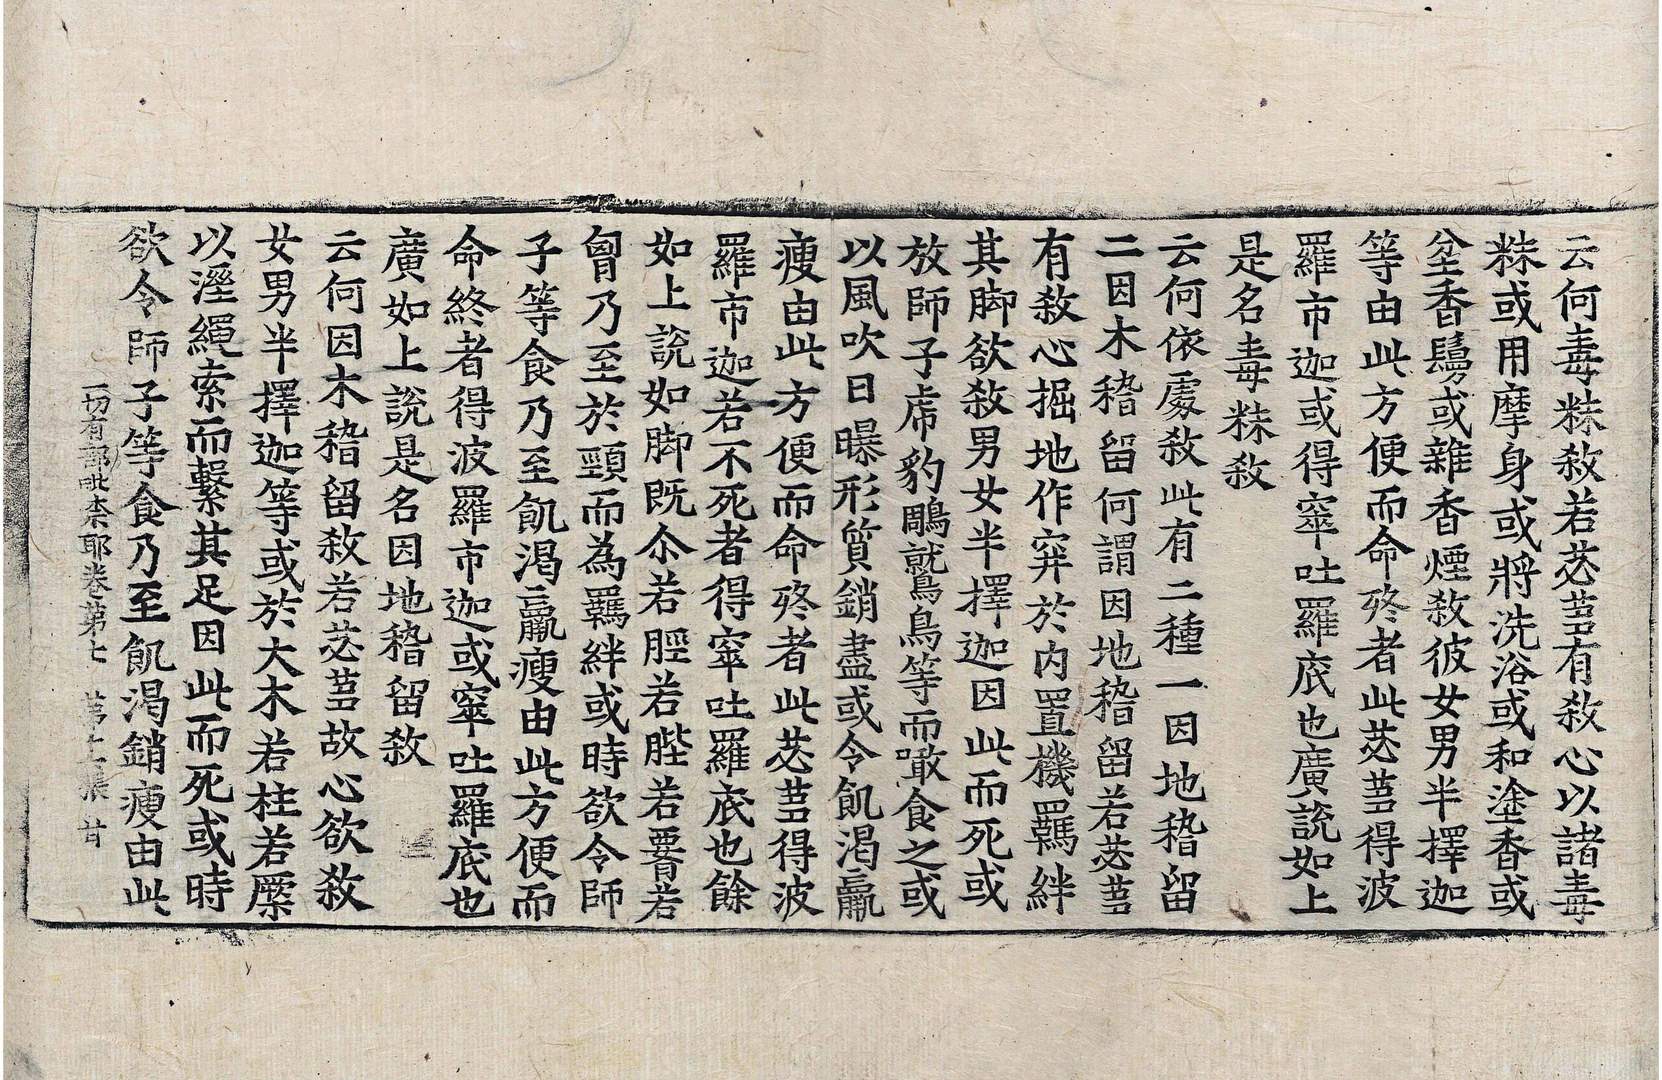 云何毒粖殺若苾芻有殺心以諸毒
粖或用摩身或將洗浴或和塗香或
坌香鬘或雜香煙殺彼女男半擇迦
等由此方便而命終者此苾芻得波
羅市迦或得窣吐羅底也廣說如上
是名毒粖殺
云何依處殺此有二種一因地稽留
二因木稽留何謂因地稽留若苾芻
有殺心掘地作穽於內置機羈絆
其脚欲殺男女半擇迦因此而死或
放師子虎豹鵰鷲鳥等而噉食之或
以風吹日曝形質銷盡或令飢渴羸
瘦由此方便而命終者此苾芻得波
羅市迦若不死者得窣吐羅底也餘
如上說如脚既尒若脛若䏶若署若
胷乃至於頸而為羈絆或時欲令師
子等食乃至飢渴羸瘦由此方便而
命終者得波羅市迦或窣吐羅底也
廣如上說是名因地稽留殺
云何因木稽留殺若苾芻故心欲殺
女男半擇迦等或於大木若柱若橜
以溼繩索而繫其足因此而死或時
欲令師子等食乃至飢渴銷瘦由此
一切有部毗柰耶卷第七 第十張 甘